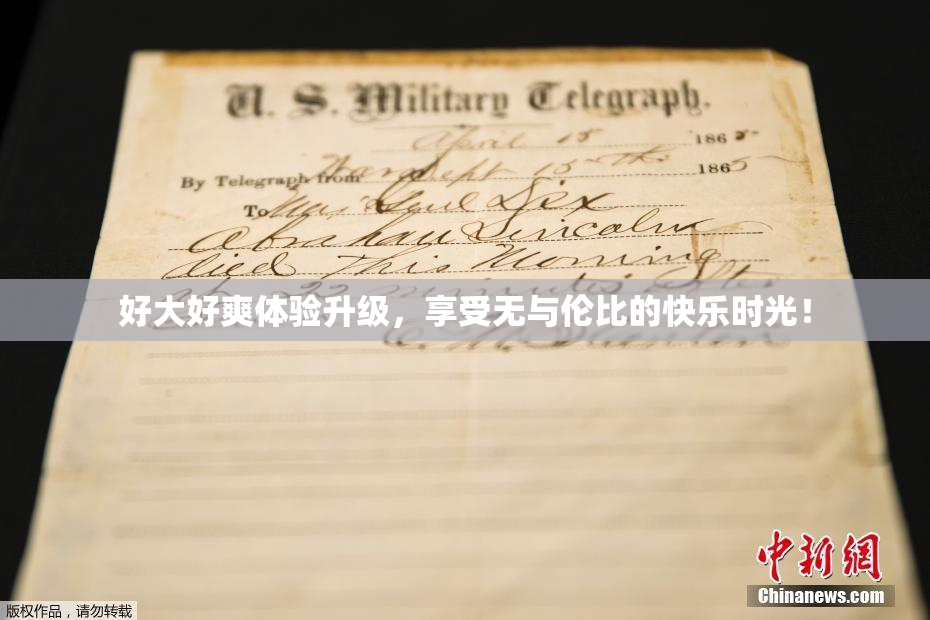 U. S. Military Telegraph.
April 15 1865
By Telegraph from War Dept 15th 1865
To Maj Genl Dix
Abraham Lincoln
died This Morning
at 22 minutes after
好大好爽体验升级，享受无与伦比的快乐时光！
E. M. Stanton
中新网
Chinanews.com
版权作品，请勿转载